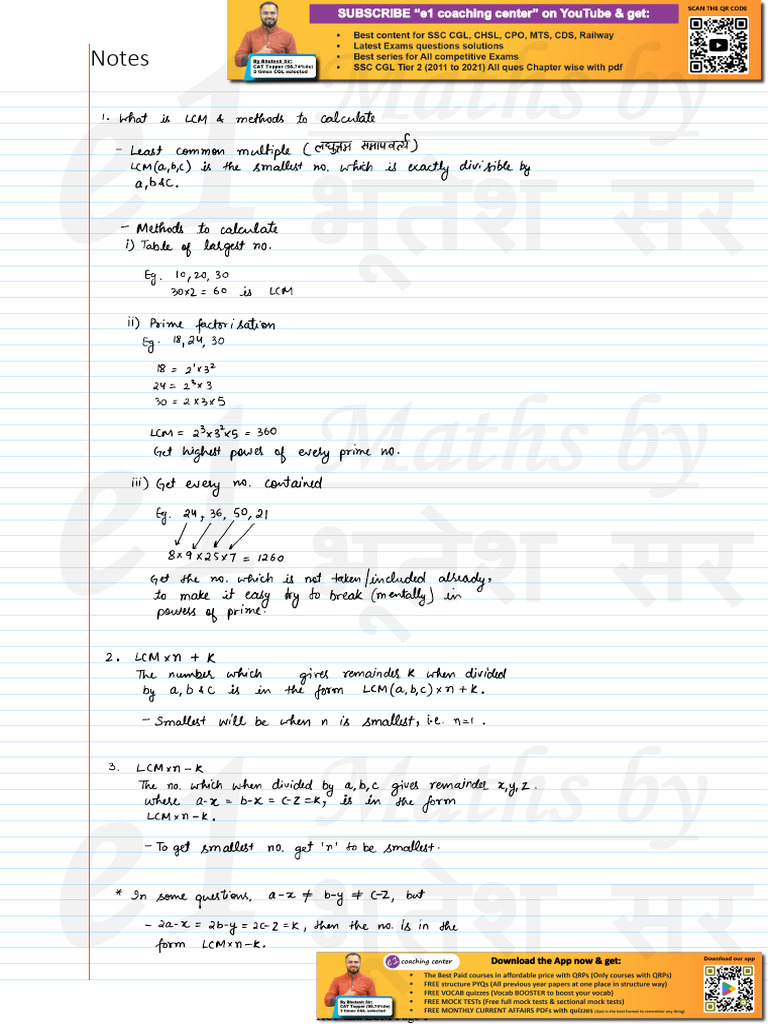 SUBSCRIBE “e1 coaching center” on YouTube & get:
SCAN THE QR CODE
• Best content for SSC CGL, CHSL, CPO, MTS, CDS, Railway
• Latest Exams questions solutions
• Best series for All competitive Exams
• SSC CGL Tier 2 (2011 to 2021) All ques Chapter wise with pdf
By Bhutesh Sir:
CAT Topper (98.74%ile)
3 times CGL selected
Notes
e1 Maths by
भूतेश सर
1. What is LCM & methods to calculate
- Least common multiple (लघुत्तम समापवर्त्य)
LCM(a,b,c) is the smallest no. which is exactly divisible by
a, b & c.
- Methods to calculate
i) Table of largest no.
Eg. 10, 20, 30
30×2 = 60 is LCM
ii) Prime factorisation
Eg. 18, 24, 30
18 = 2¹×3²
24 = 2³×3
30 = 2×3×5
LCM = 2³×3²×5 = 360
Get highest power of every prime no.
e1 Maths by
भूतेश सर
iii) Get every no. contained
Eg. 24, 36, 50, 21
8×9×25×7 = 1260
Get the no. which is not taken/included already,
to make it easy try to break (mentally) in
powers of prime.
2. LCM×n + k
The number which gives remainder k when divided
by a, b & c is in the form LCM(a,b,c)×n + k.
- Smallest will be when n is smallest, i.e. n=1.
3. LCM×n - k
The no. which when divided by a, b, c gives remainder x, y, z.
where a-x = b-x = c-z = k, is in the form
LCM×n - k.
- To get smallest no. get 'n' to be smallest.
e1 Maths by
भूतेश सर
* In some questions, a-x ≠ b-y ≠ c-z, but
- 2a-x = 2b-y = 2c-z = k, then the no. is in the
form LCM×n-k.
e1 coaching center
Download the App now & get:
Download our app
• The Best Paid courses in affordable price with QRPs (Only courses with QRPs)
• FREE structure PYQs (All previous year papers at one place in structure way)
• FREE VOCAB quizzes (Vocab BOOSTER to boost your vocab)
• FREE MOCK TESTs (Free full mock tests & sectional mock tests)
• FREE MONTHLY CURRENT AFFAIRS PDFs with quizzes (Quiz is the best format to remember any thing)
By Bhutesh Sir:
CAT Topper (98.74%ile)
3 times CGL selected